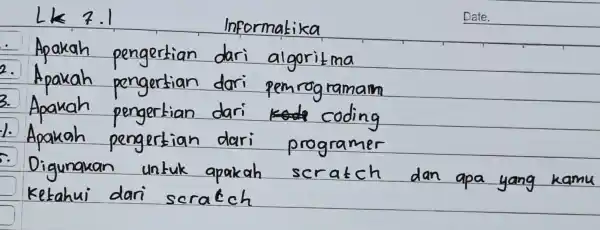 Lk 7.1
Informatika
Date.
1. Apakah pengertian dari algoritma
2. Apakah pengertian dari pemrogramam
3. Apakah pengertian dari coding
4. Apakah pengertian dari programer
5. Digunakan untuk apakah scratch dan apa yang kamu
Ketahui dari scratch